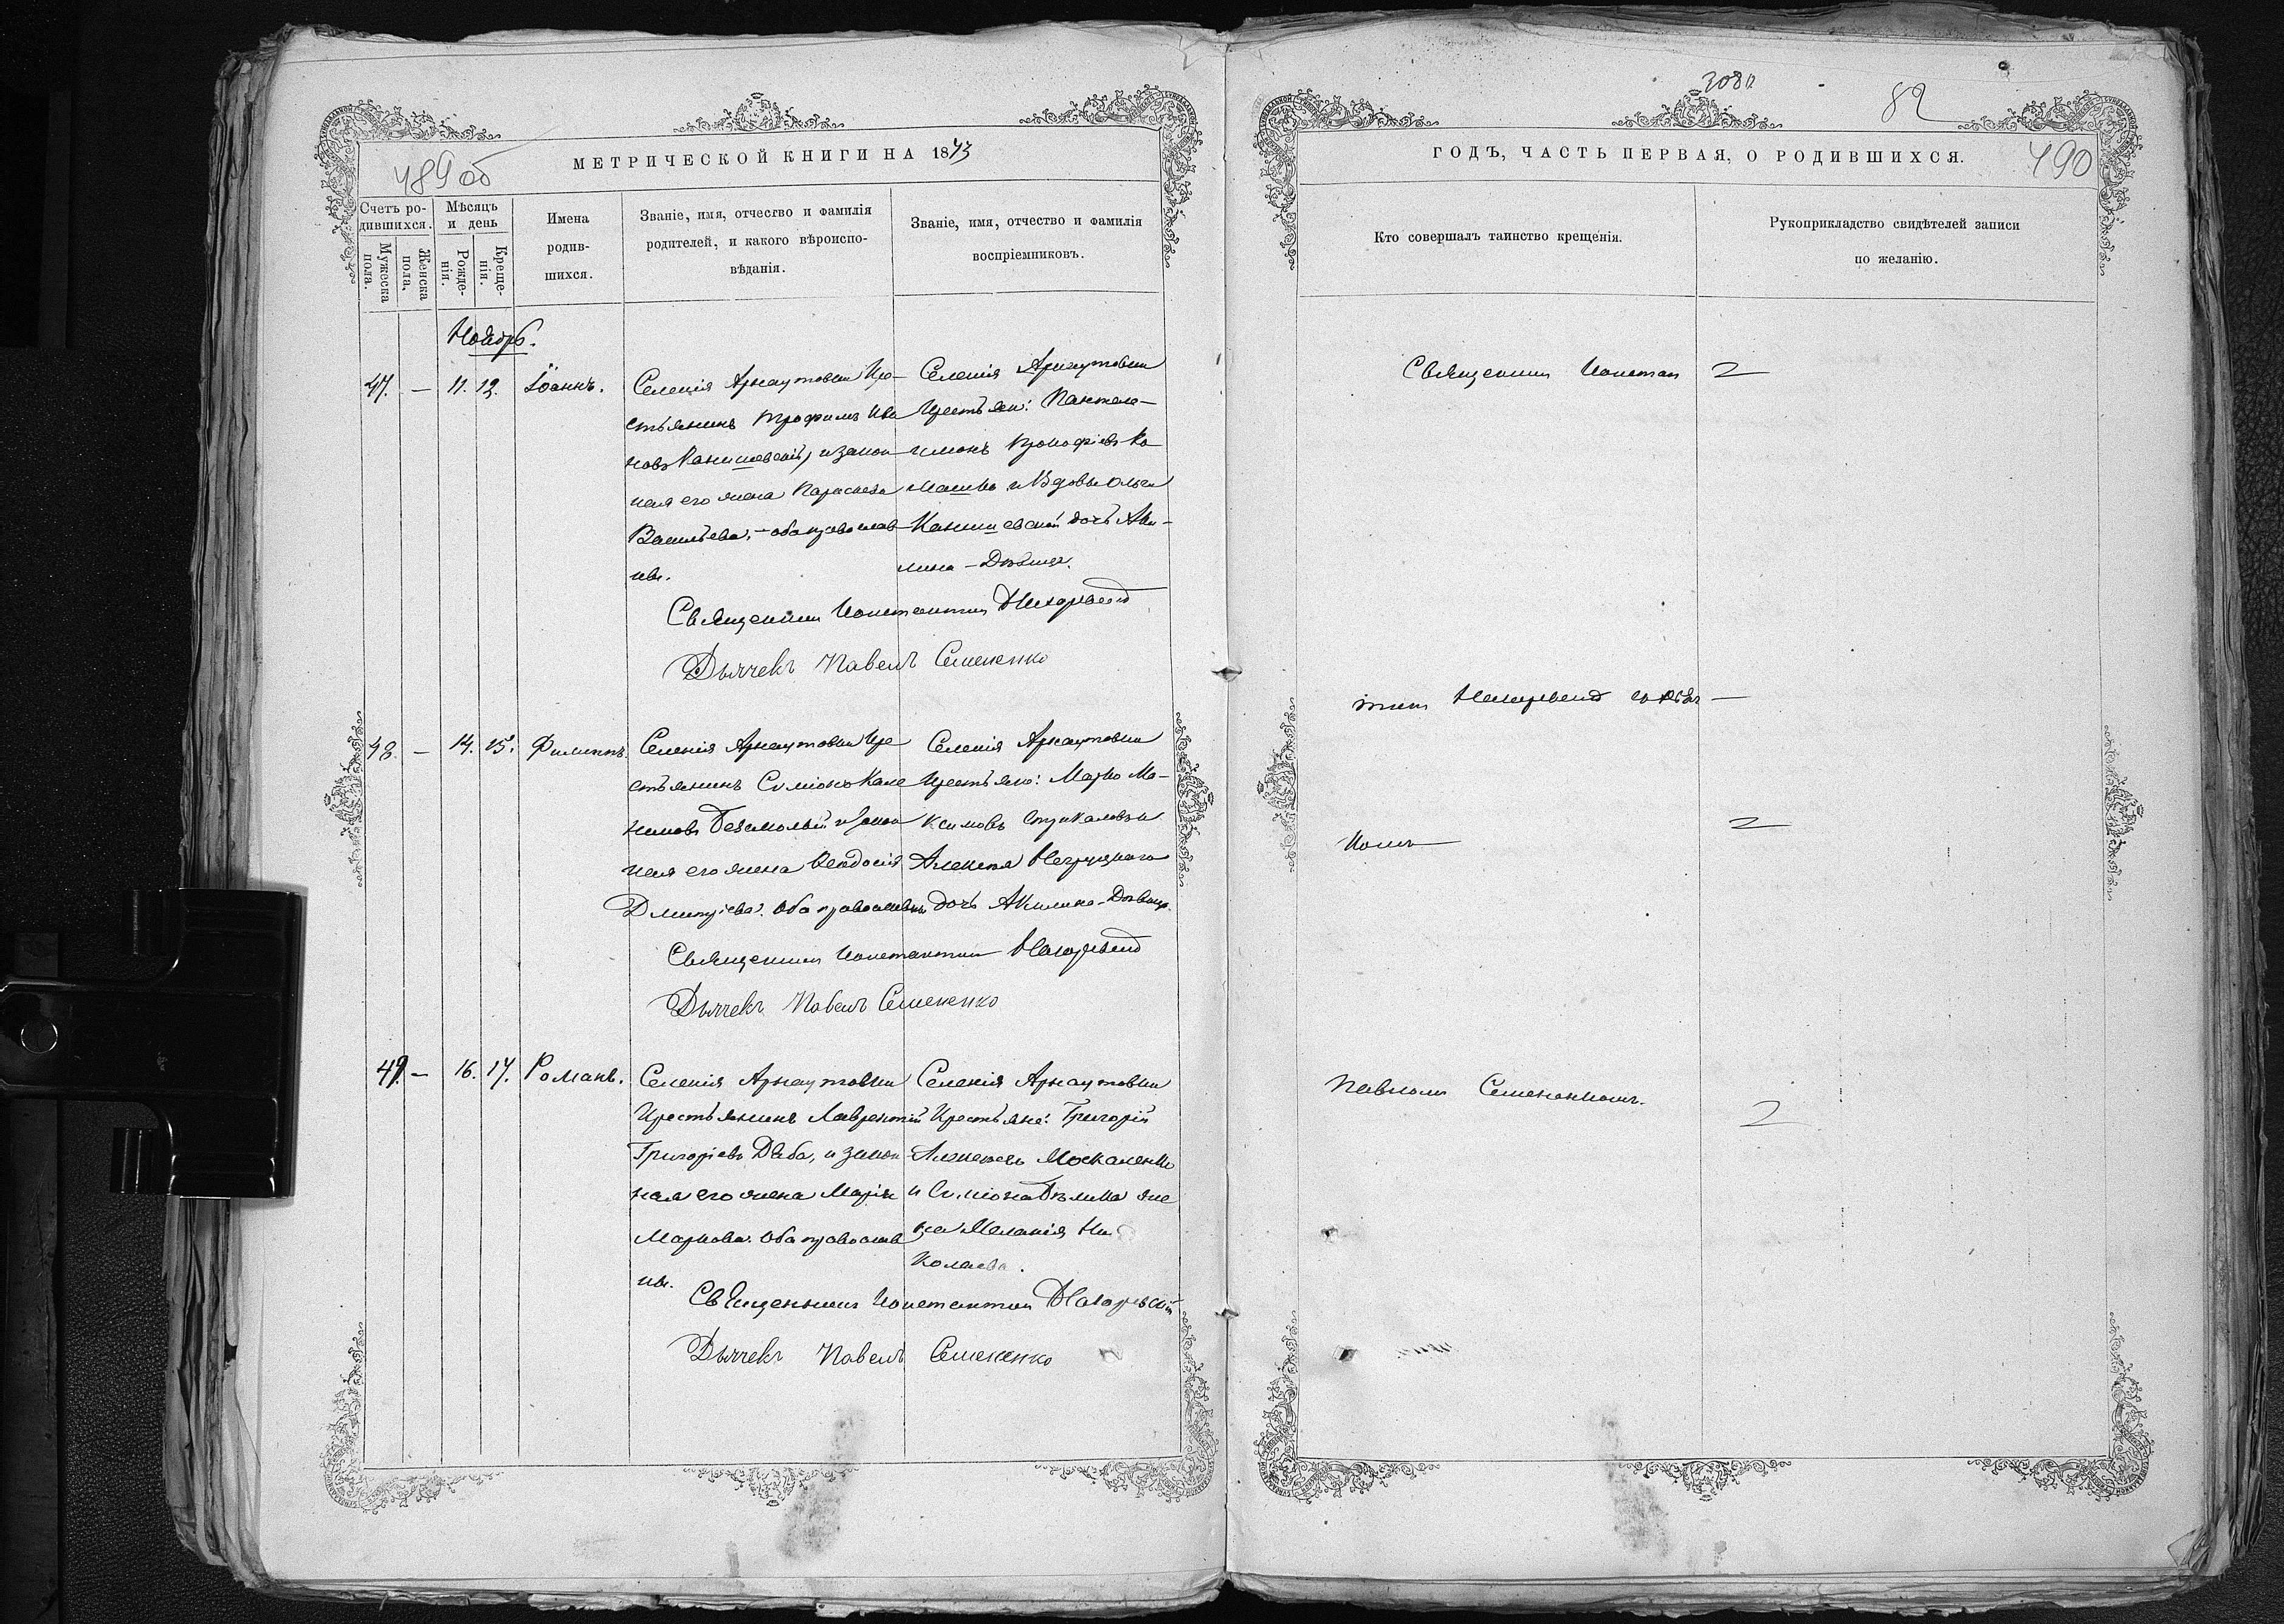 489 об
МЕТРИЧЕСКОЙ КНИГИ НА 1873
Счетъ ро-
дившихся.
Мужеска
пола.
Женска
пола.
Мѣсяцъ
и день
Рожде-
нія.
Креще-
нія.
Имена
родив-
шихся.
Званіе, имя, отчество и фамилія
родителей, и какого вѣроиспо-
вѣданія.
Званіе, имя, отчество и фамилія
воспріемниковъ.
Ноябрь.
47. — 11. 12. Іоаннъ.
Селенія Арнаутовки Кре-
стьянинъ Трофимъ Ива
новъ Канишевскій, и закон
ная его жена Параскева
Васильева, - оба православ
ны.
Селенія Арнаутовки
Крестьяне: Пантеле-
имонъ Прокофіевъ Ко
и Вдовы Ольги
Канишевской дочь Аки-
лина - Дѣвица.
Священникъ Константинъ Нагорскій
Дьячекъ Павелъ Семененко
48. — 14. 15. Филиппъ
Селенія Арнаутовки Кре
стьянинъ Симіонъ
Безмолый и закон
ная его жена Феодосія
Дмитріева. Оба православны
Селенія Арнаутовки
Крестьяне: Марко Ма-
ксимовъ Стукаловъ и
Алексея
дочь Акилина - Дѣвица.
Священникъ Константинъ Нагорскій
Дьячекъ Павелъ Семененко
49. — 16. 17. Романъ.
Селенія Арнаутовки
Крестьянинъ Лаврентій
Григоріевъ Дзаба, и закон
ная его жена Марія
Маркова. Оба православ
ны.
Селенія Арнаутовки
Крестьяне: Григорій
Алексеевъ Москаленко
и Симіона Бѣлика же
на Меланія Ни
колаева.
Священникъ Константинъ Нагорскій
Дьячекъ Павелъ Семененко
308
82
490
ГОДЪ, ЧАСТЬ ПЕРВАЯ, О РОДИВШИХСЯ.
Кто совершалъ таинство крещенія.
Рукоприкладство свидѣтелей записи
по желанію.
Священникъ Констан
тинъ Нагорскій съ Дьяч—
комъ
Павломъ Семененкомъ.